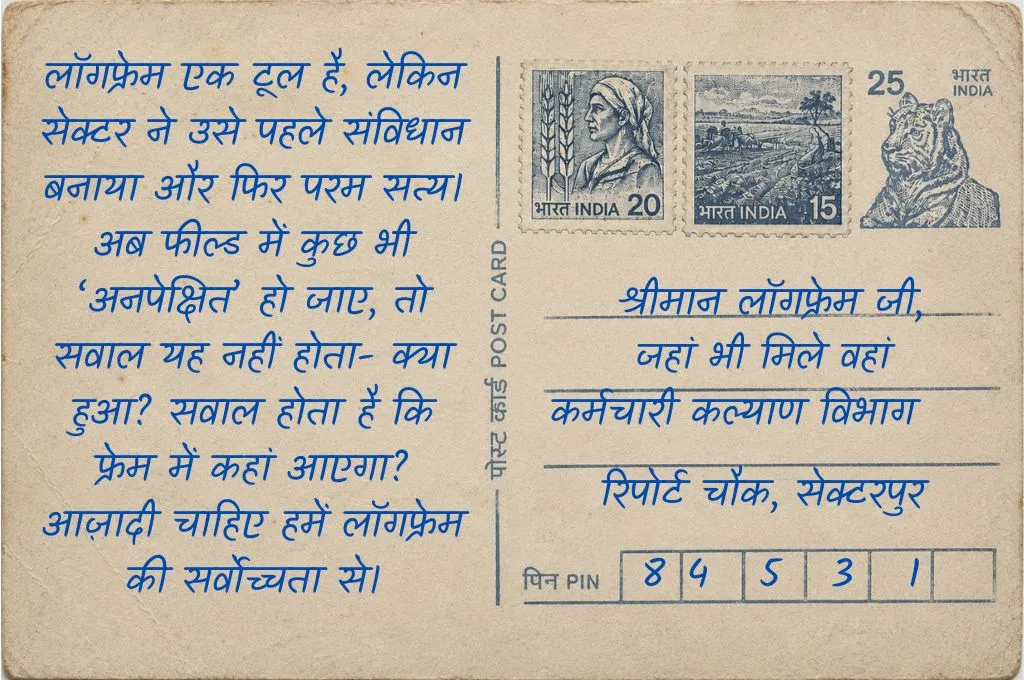 लॉगफ्रेम एक टूल है, लेकिन
सेक्टर ने उसे पहले संविधान
बनाया और फिर परम सत्य।
अब फील्ड में कुछ भी
‘अनपेक्षित’ हो जाए, तो
सवाल यह नहीं होता- क्या
हुआ? सवाल होता है कि
फ्रेम में कहां आएगा?
आज़ादी चाहिए हमें लॉगफ्रेम
की सर्वोच्चता से।
पोस्ट कार्ड POST CARD
भारत INDIA 20
भारत INDIA 15
25 भारत
INDIA
श्रीमान लॉगफ्रेम जी,
जहां भी मिले वहां
कर्मचारी कल्याण विभाग
रिपोर्ट चौक, सेक्टरपुर
पिन PIN 8 4 5 3 1